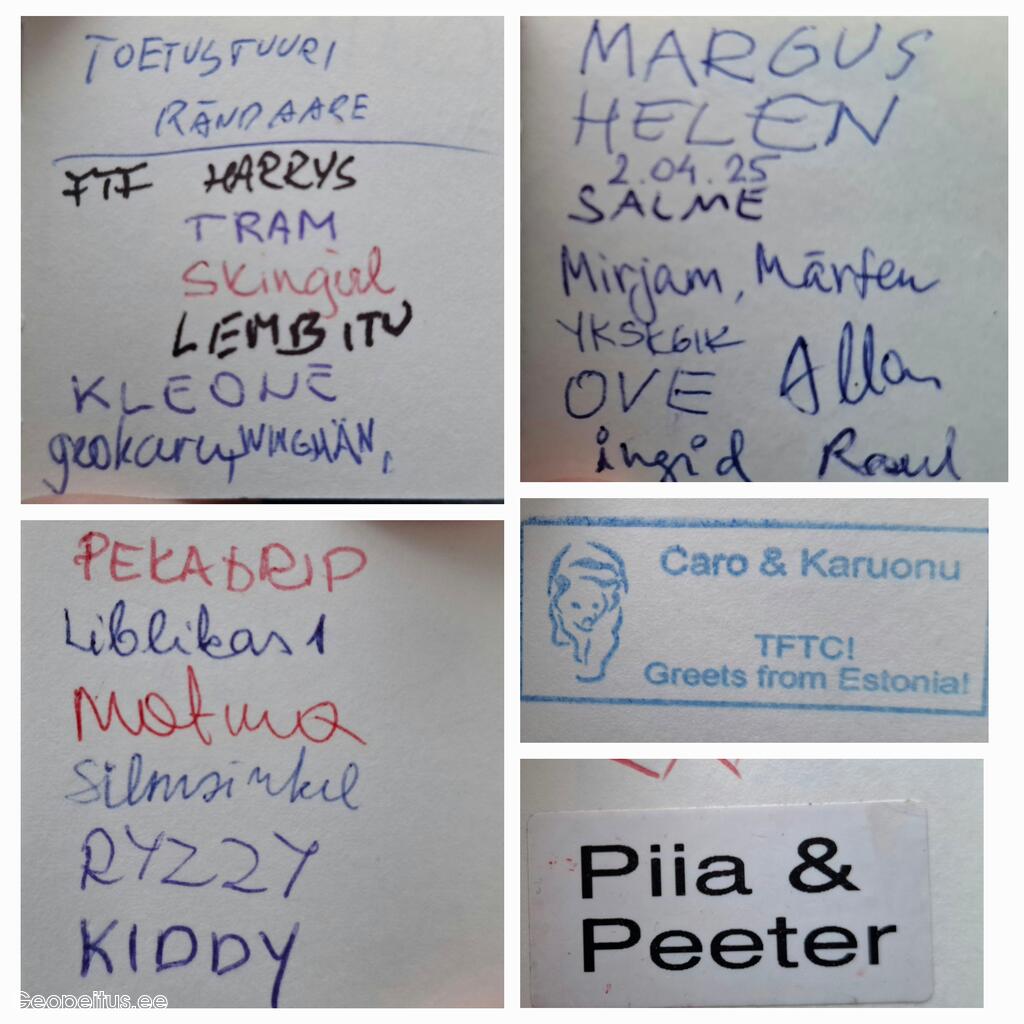 TOETUSTUURI
RÄNDAARE
FTF HARRYS
TRAM
Skingirl
LEMBITU
KLEONE
geokaru, WINGMÄN,
MARGUS
HELEN
2.04.25
SALME
Mirjam, Mārten
YKSKÕIK
OVE Allan
ingid Raul
PEKADRIP
Liblikas1
Motma
Silmsinkel
RYZZY
KIDDY
Caro & Karuonu
TFTC!
Greets from Estonia!
Piia &
Peeter
Geopeitus.ee